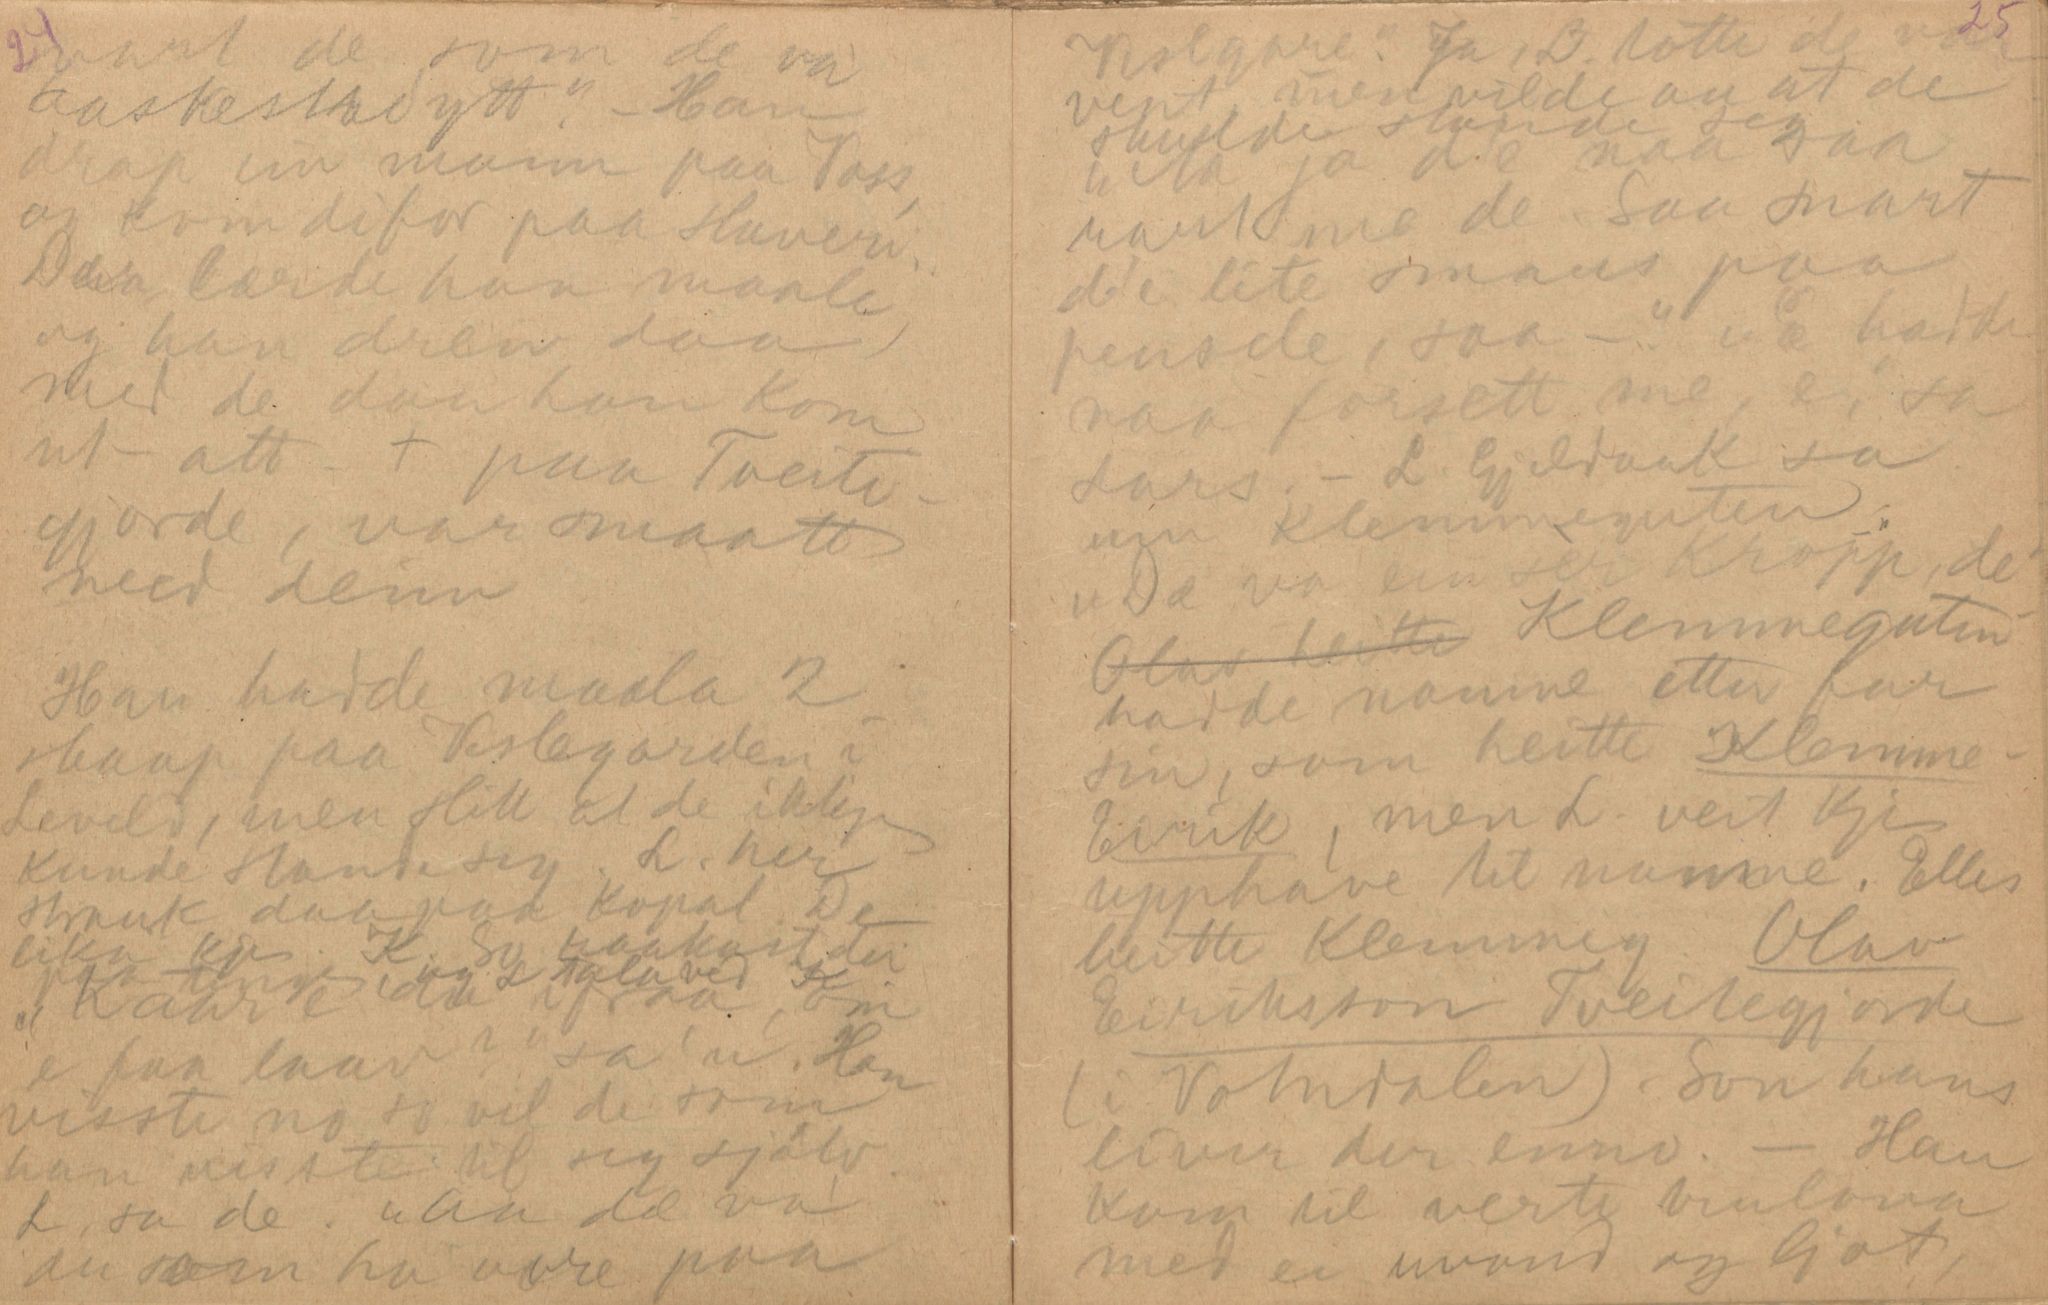 24
vart de som de va
Han
drap ein mann paa Voss,
og kom difor paa slaveri.
Der lærde han maala
og han drew daa
med de daa han kom
ut att - + paa Tveite-
gjorde, var smaatt
med deim
Han hadde maala 2
skaap paa Vislegarden i
Leveld, men slikt at de ikkje
kunde standa seg. L. her
strauk daa paa Kopal. De
lika kje K. So raakast dei
paa ting, og L tala ved K
"Kaar e du ifraa, om
e faa laav?" sa'n. Han
visste no so vel de som
han visste til seg sjølv.
L. sa de. "Aa dæ va
du som ha vore paa
25
Vislgare." Ja, L. totte de var
vent, men vilde au at de
skulde stande seg
"Aa ja d'e naa saa
rart me de. Saa snart
d'e lite smaus paa
pensele, saa -" "Æ hadde
naa forsett me, e," sa
Lars. - L. Gjeldaak sa
um Klemmeguten:
"Dæ va ein sér kropp, de"
Olav heitte Klemmeguten
hadde namne etter far
sin, som heitte Klemme-
Eirik, men L. veit kje
upphave til namne. Elles
heitte Klemmeg. Olav
Eiriksson Tveitegjorde
(i Votndalen). Son hans
liver der enno. - Han
kom til verte
med ei uvond og ljot,